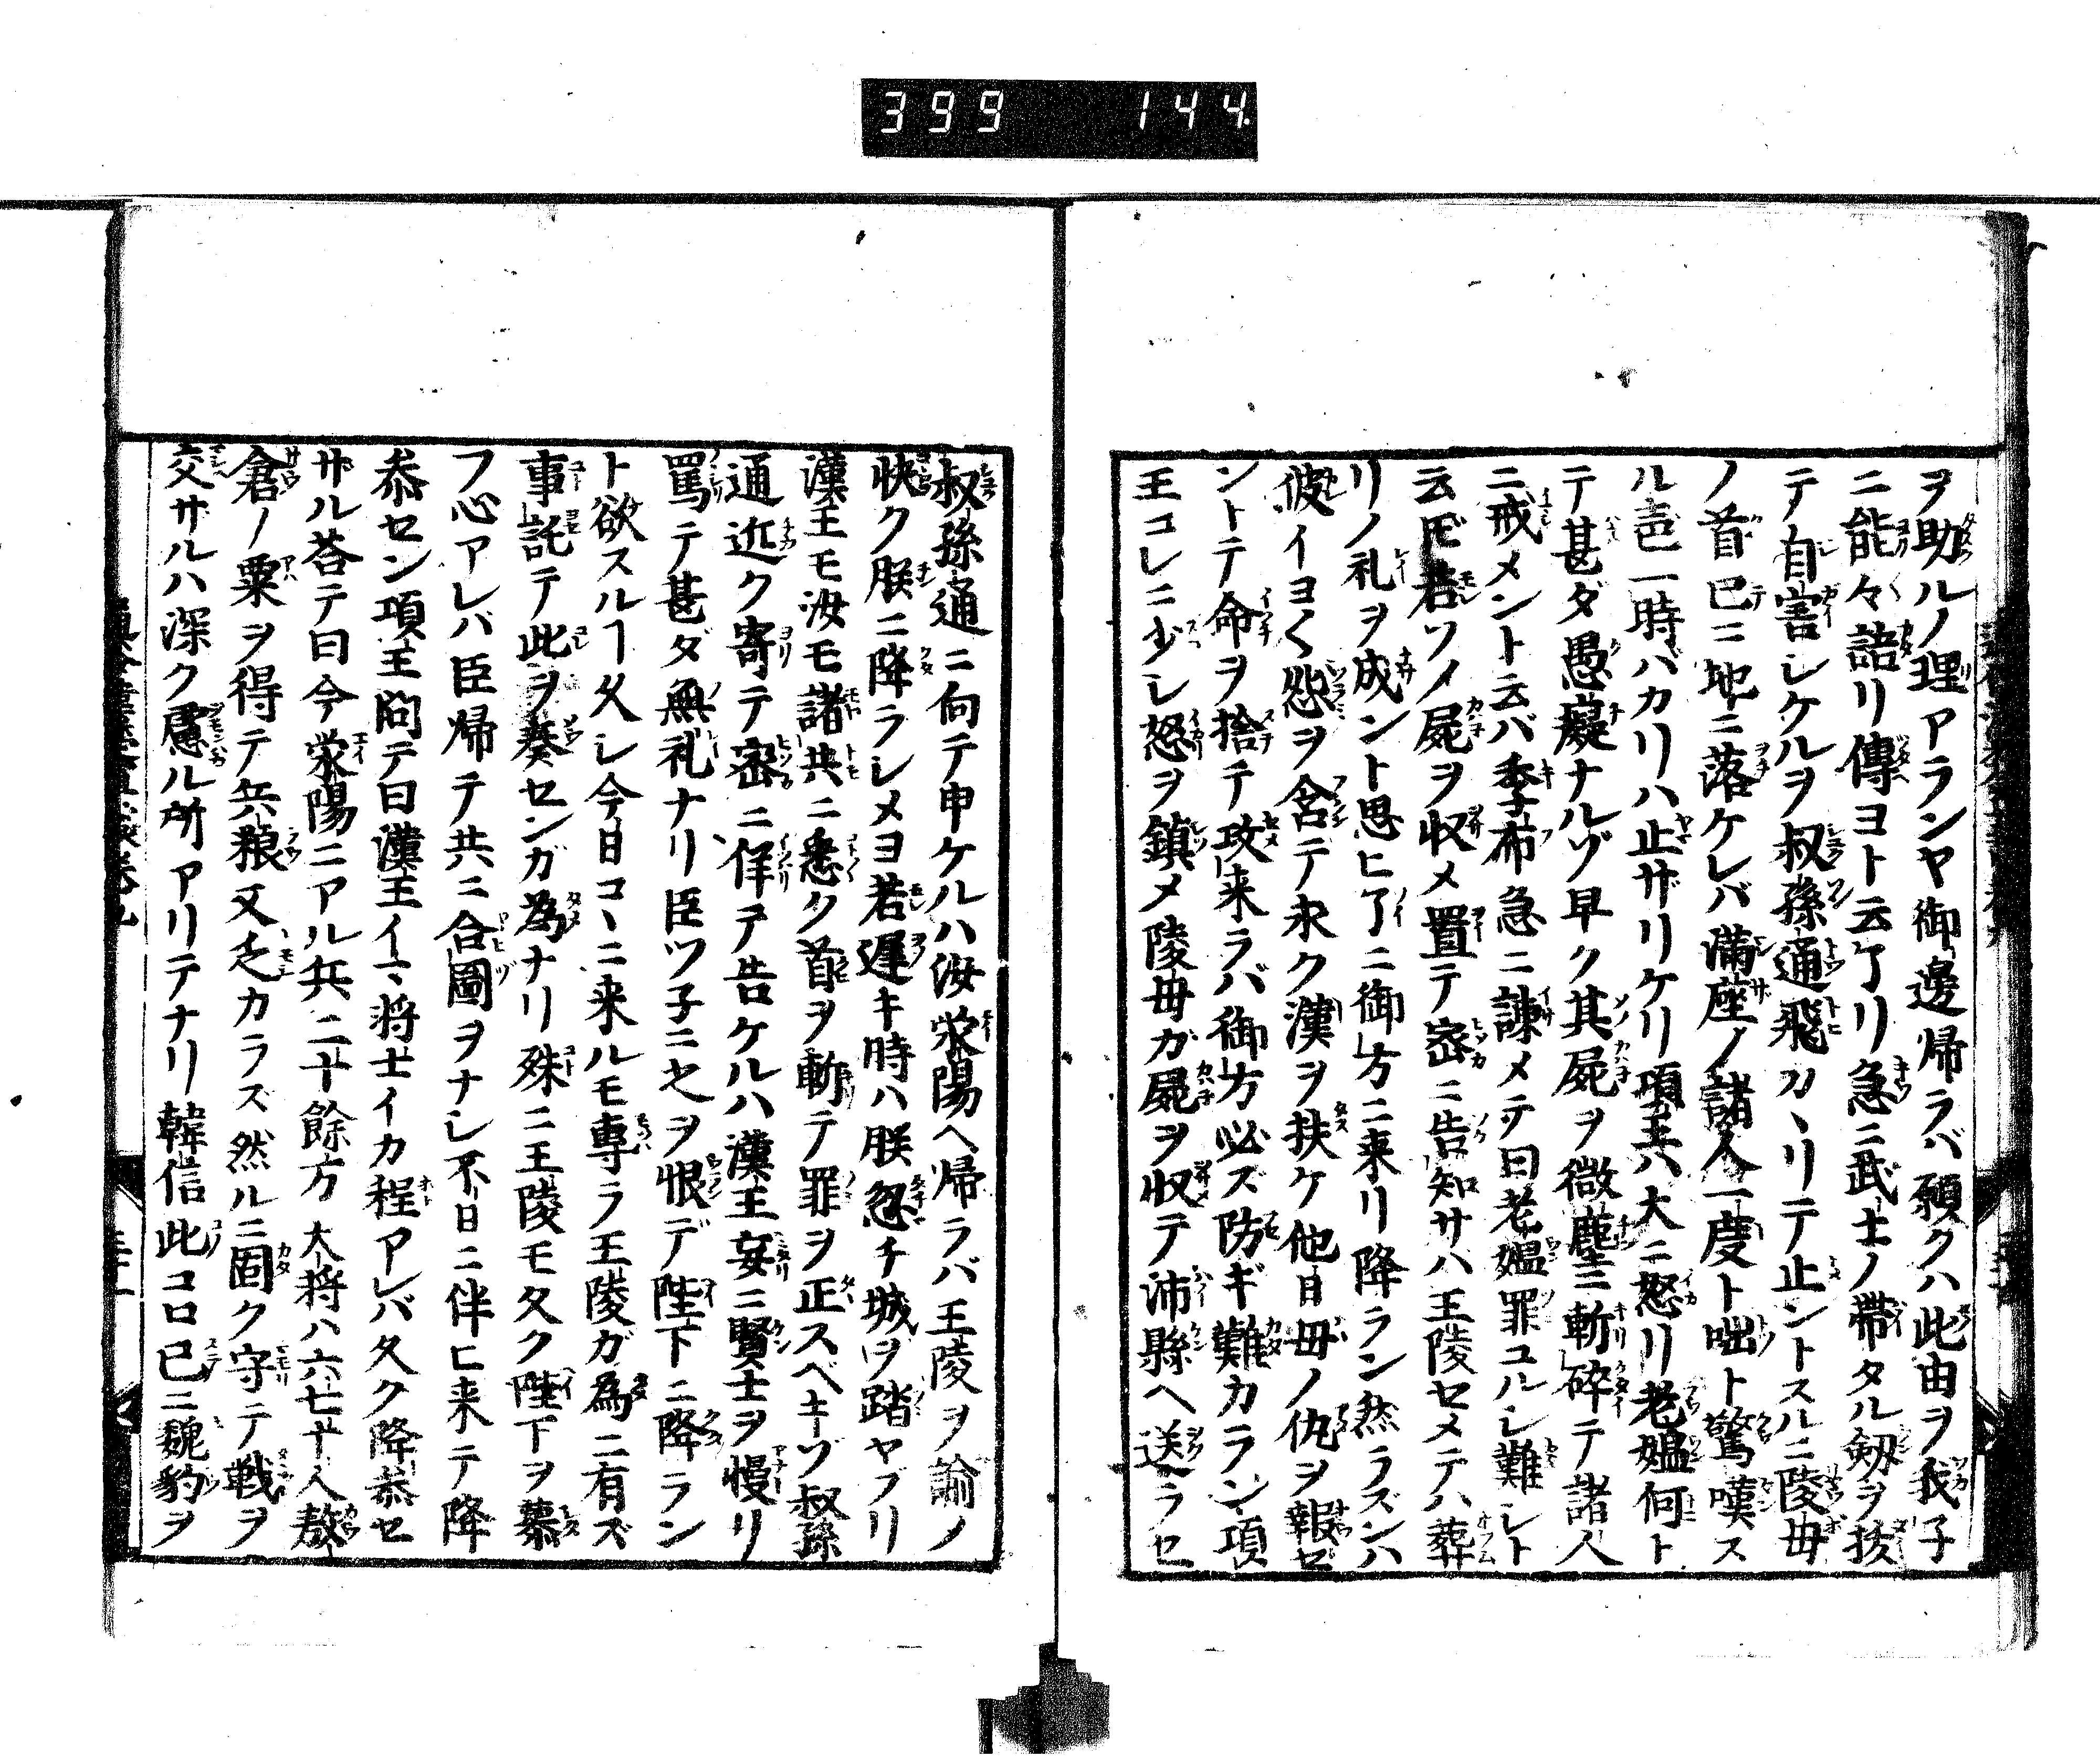 399 144
ヲ助ルノ理アランヤ御邊帰ラバ願クハ此由ヲ我子
ニ能々語リ傳ヨト云了リ急ニ武士ノ帯タル剱ヲ抜
テ自害シケルヲ叔孫通飛カヽリテ止ントスルニ陵毋
ノ首已ニ地ニ落ケレバ満座ノ諸人一度ト咄ト驚嘆ス
ル㕝一時バカリハ止ザリケリ項王ハ大ニ怒リ老媼何ト
テ甚ダ愚癡ナルゾ早ク其屍ヲ微塵ニ斬碎テ諸人
ニ戒メント云バ季布急ニ諫メテ曰老媼罪ユルシ難シト
云𪜈若ソノ屍ヲ収メ置テ宻ニ告知サハ王陵セメテハ葬
リノ礼ヲ成ント思ヒ了ニ御方ニ来リ降ラン然ラズンハ
彼イヨ〱怨ヲ含テ永ク漢ヲ扶ケ他日毋ノ仇ヲ報ゼ
ントテ命ヲ捨テ攻来ラバ御方必ス防ギ難カラン項
王コレニ少シ怒ヲ鎮メ陵毋ガ屍ヲ収テ沛縣ヘ送ラセ
叔孫通ニ向テ申ケルハ汝滎陽ヘ帰ラバ王陵ヲ諭ノ
快ク朕ニ降ラシメヨ若遅キ時ハ朕忽チ城ヲ踏ヤブリ
漢王モ汝モ諸共ニ悉ク首ヲ斬テ罪ヲ正スベキゾ叔孫
通近ク寄テ宻ニ佯テ告ケルハ漢王妄ニ賢士ヲ慢リ
罵テ甚ダ無礼ナリ臣ツ子ニ之ヲ恨デ陛下ニ降ラン
ト欲スルヿ久シ今日コヽニ来ルモ専ラ王陵ガ為ニ有ズ
事託テ此ヲ奏センガ為ナリ殊ニ王陵モ久ク陛下ヲ慕
フ心アレバ臣帰テ共ニ合圖ヲナシ不日ニ伴ヒ来テ降
参セン項王問テ曰漢王イマヽ将士イカ程アレバ久ク降参セ
ザル荅テ曰今滎陽ニアル兵二十餘万大将ハ六七十人敖
倉ノ粟ヲ得テ兵粮又乏カラズ然ルニ固ク守テ戦ヲ
交サルハ深ク慮ル所アリテナリ韓信此コロ已ニ魏豹ヲ